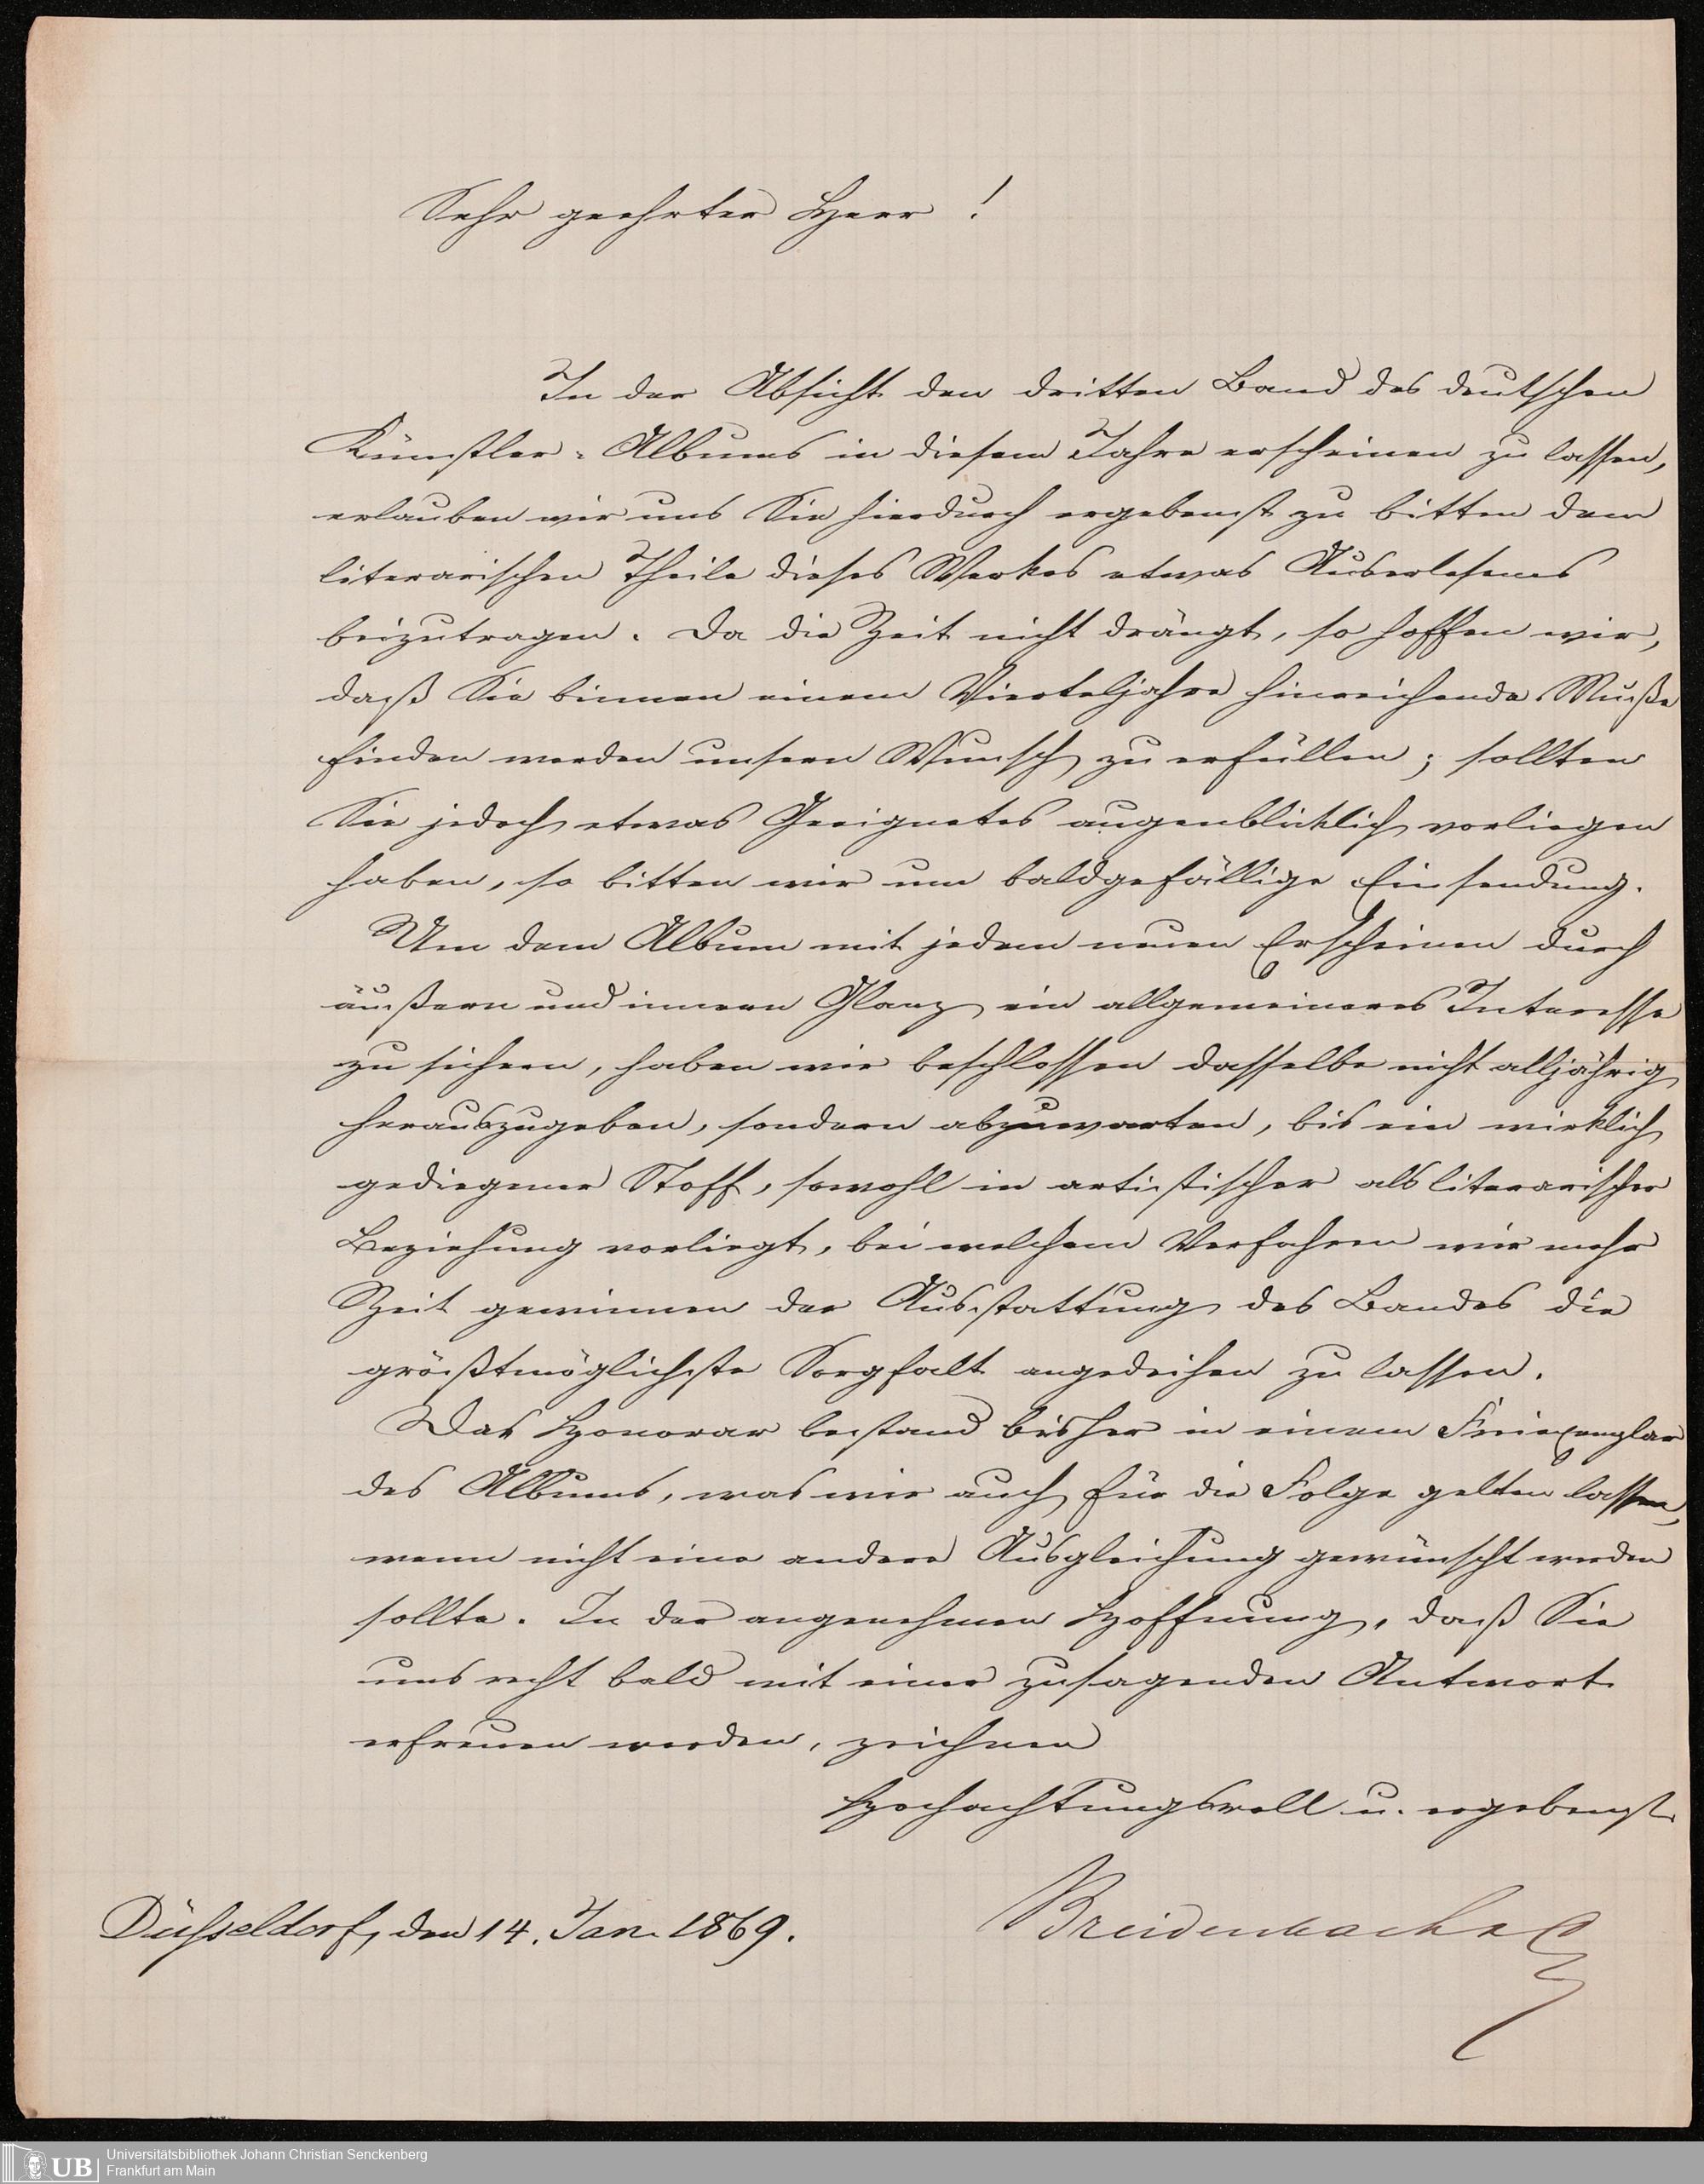 Sehr geehrter Herr !
In der Absicht den dritten Band des deutschen
Künstler-Albums in diesem Jahre erscheinen zu lassen,
erlauben wir uns Sie hierdurch ergebenst zu bitten dem
literarischen Theile dieses Werkes etwas Auserlesenes
beizutragen. Da die Zeit nicht drängt, so hoffen wir,
daß Sie binnen einem Vierteljahre hinreichende Muße
finden werden unsern Wunsch zu erfüllen; sollten
Sie jedoch etwas Geeignetes augenblicklich vorliegen
haben, so bitten wir um baldgefällige Einsendung.
Um dem Album mit jedem neuen Erscheinen durch
äußern und innern Glanz ein allgemeineres Interesse
zu sichern, haben wir beschlossen dasselbe nicht alljährig
herauszugeben, sondern abzuwarten, bis ein wirklich
gediegener Stoff, sowohl in artistischer als literarischer
Beziehung vorliegt, bei welchem Verfahren wir mehr
Zeit gewinnen der Ausstattung des Bandes die
größtmöglichste Sorgfalt angedeihen zu lassen.
Das Honorar bestand bisher in einem Freiexemplar
des Albums, was wir auch für die Folge gelten lassen,
wenn nicht eine andere Ausgleichung gewünscht werden
sollte. In der angenehmen Hoffnung, daß Sie
uns recht bald mit einer zusagenden Antwort
erfreuen werden, zeichnen
Hochachtungsvoll u. ergebenst
Düsseldorf, den 14. Jan. 1869.
Breidenbach &
Universitätsbibliothek Johann Christian Senckenberg
UB Frankfurt am Main